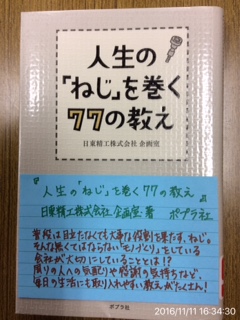 人生の
「ねじ」を巻く
77の教え
日東精工株式会社 企画室
『人生の「ねじ」を巻く77の教え』
日東精工株式会社 企画室・著 ポプラ社
普段は目立たなくても大事な役割を果たす、ねじ。
そんな無くてはならない"モノづくり"をしている
会社が大切にしていることとは!?
周りの人への気配りや感謝の気持ちなど、
毎日の生活にも取り入れやすい教えがたくさん!
ポプラ社
2016/11/11 16:34:30